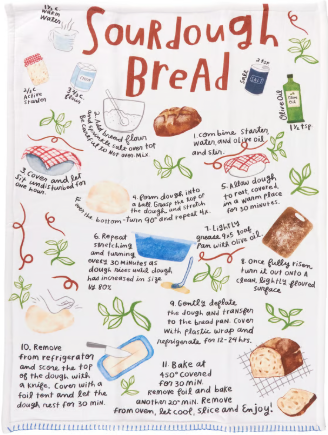 SourDough
Bread
1½ c.
warm
water
2/3 c
Active
Starter
3 ½ c.
flour
Salt
2 tsp
Olive Oil
1½ tsp
1. Combine starter,
water, and olive oil,
and stir.
2. Add bread flour
and sprinkle salt over top
Be careful to not over-mix
3. Cover and let
sit undisturbed for
one hour.
4. Form dough into
a ball. Grasp the top of
the dough, and stretch
over the bottom - turn 90° and repeat 4x.
5. Allow dough
to rest, covered
in a warm place
for 30 minutes.
6. Repeat
stretching
and turning
every 30 minutes as
dough rises until dough
has increased in size
by 80%
7. Lightly
grease 9x5 loaf
pan with olive oil.
8. Once fully risen
turn it out onto a
clean, lightly floured
surface
9. Gently deflate
the dough and transfer
to the bread pan. Cover
with plastic wrap and
refrigerate for 12-24 hrs.
10. Remove
from refrigerator
and score the top
of the dough with
a knife. Cover with a
foil tent and let the
dough rest for 30 min.
11. Bake at
450° covered
for 30 min.
Remove foil and bake
another 20 min. Remove
from oven, let cool, slice and Enjoy!